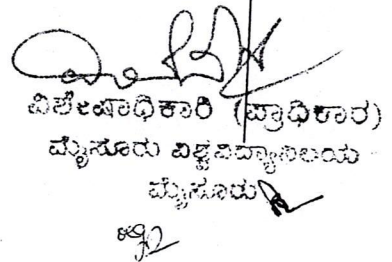 ವಿಶೇಷಾಧಿಕಾರಿ (ಪ್ರಾಧಿಕಾರ)
ಮೈಸೂರು ವಿಶ್ವವಿದ್ಯಾನಿಲಯ
ಮೈಸೂರು